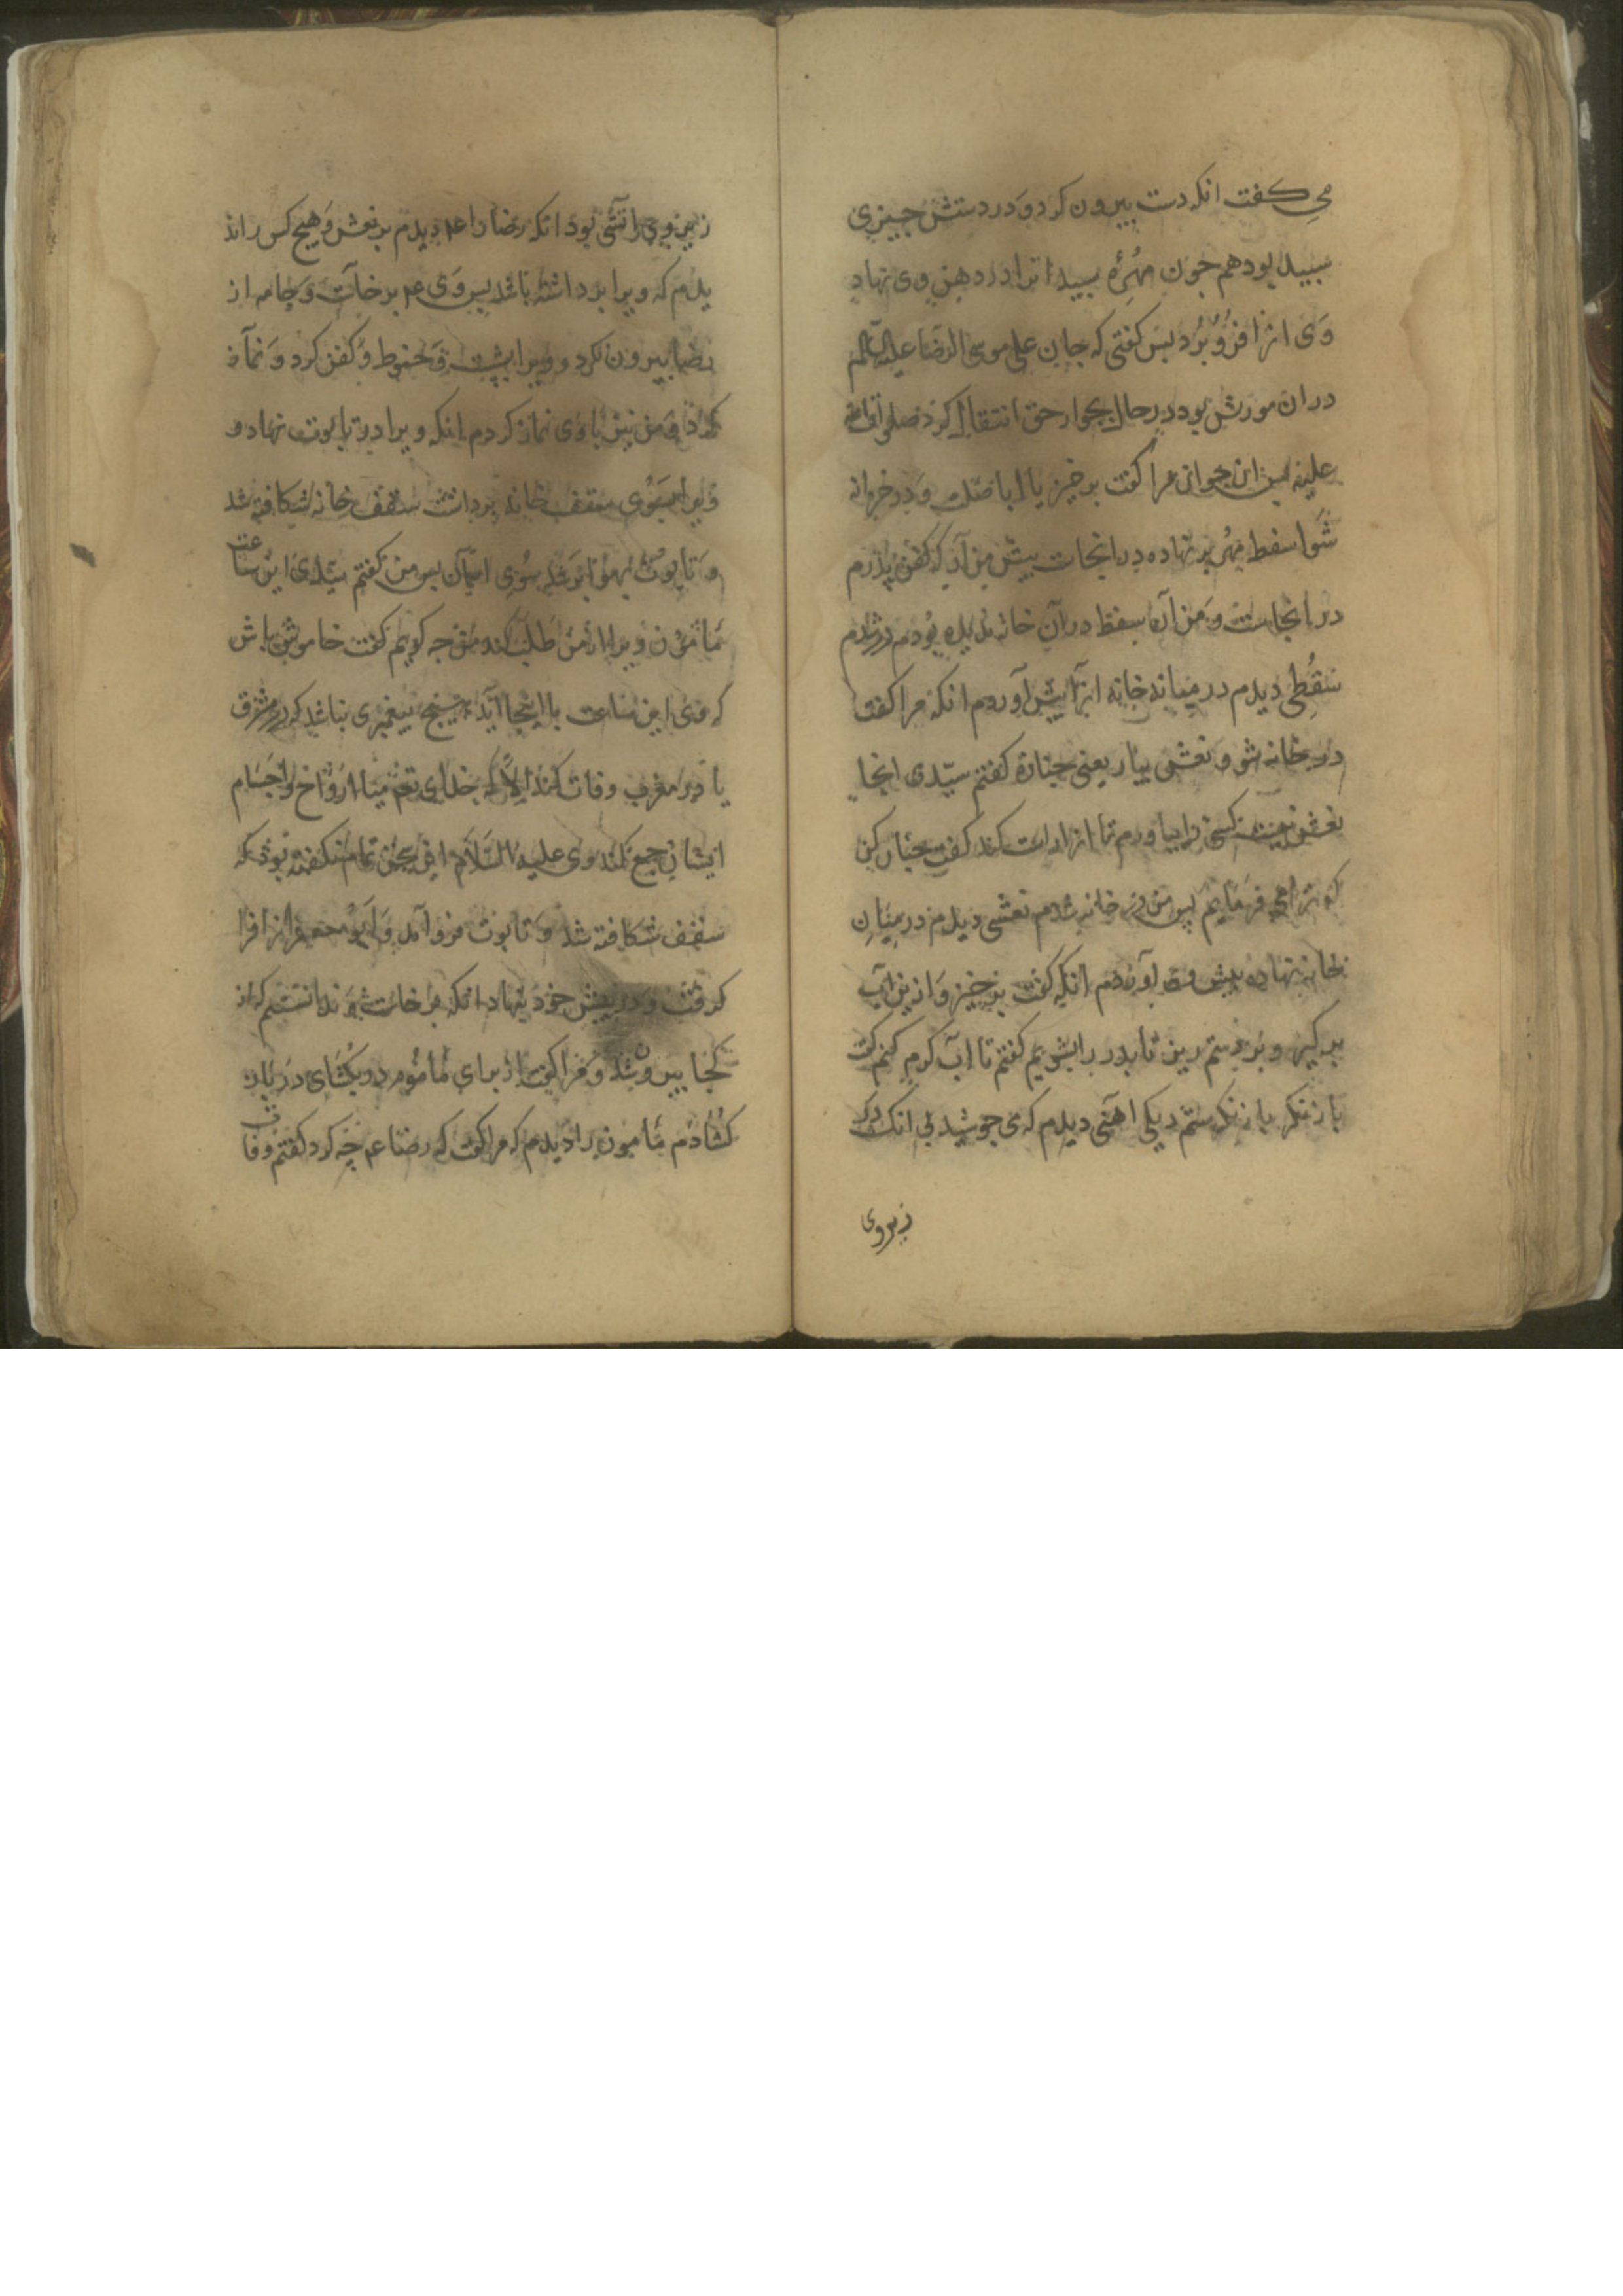 می کفت انکه دست بیرون کرد و در دستش جیزی
سبید بود هم جون مهرۀ سبید انرا در دهن وی نهاد
وی انرا فرو برد بس کفتی که جان علی موسی الرضا علیه السلم
در ان مورش بود در حال بجوار حق انتقال کرد صلوات الله
علیه بس این جوان مرا کفت برخیز یا ابا صلت و در خزانه
شو سفط مهر بر نهاده در انجاست بیش من آر که کفن پدرم
در انجاست و من آن سفط در آن خانه ندیده بودم در شدم
سفطی دیدم در میانه خانه انرا بیش آوردم انکه مرا کفت
در خانه شو و نعشی بیار یعنی جنازۀ کفتم سیدی اینجا
نعش نیست کسی را بیاورم تا از ان راست کند کفت جنان کن
که ترا می فرمایم بس من در خانه شدم نعشی دیدم در میان
خانه نهاده بیش وی آوردم انکه کفت برخیز و ازین آب
بر کیر و بر دستم ریز تا پدر را بشویم کفتم تا اب کرم کنم کفت
باز نکر باز نکرستم دیکی اهنی دیدم که می جوشید بی انک در
زیر وی
زیر وی آتشی بود انکه رضا را عم دیدم بر نعش و هیج کس را ند
یدم که ویرا برداشته باشد بس وی عم برخاست و جامه از
رضا بیرون کرد و ویرا بشست و حنوط و کفن کرد و نماز
کرد و من نیز با وی نماز کردم انکه ویرا در تابوت نهاد و
ویرا بسوی سقف خانه برداشت سقف خانه شکافته شد
و تابوت بهوا بر شد سوی اسمان بس من کفتم سیدی این ساعت
مأمون ویرا از من طلب کند من جه کویم کفت خاموش باش
که وی این ساعت با اینجا آید هیج بیغمبری نباشد که در مشرق
یا در مغرب وفات کند الا که خدای تع میان ارواح و اجسام
ایشان جمع کند وی علیه السلام این سخن تمام نکفته بود که
سقف شکافته شد و تابوت فرو آمد و ابو جعفر انرا فرا
کرفت و در بیش خود نهاد انکه برخاست و ندانستم که از
کجا بیرون شد و مرا کفت از برای مأمون در بکشای در باز
کشادم مأمون را دیدم که مرا کفت که رضا عم جه کرد کفتم وفات